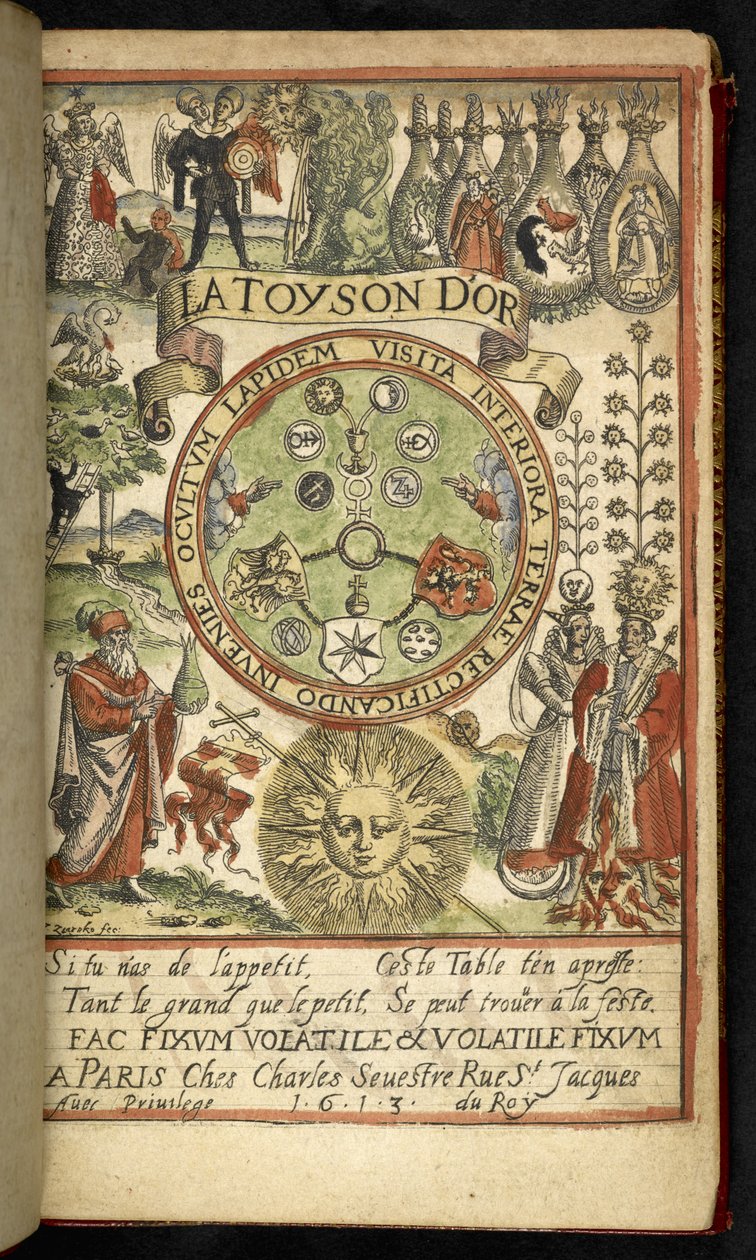 LA TOYSON D'OR
VISITA INTERIORA TERRAE RECTIFICANDO INVENIES OCVLTVM LAPIDEM
fec:
Si tu n'as de l'appetit, Ceste Table t'en apreste:
Tant le grand que le petit, Se peut trouüer à la feste.
FAC FIXVM VOLATILE & VOLATILE FIXVM
A PARIS Ches Charles Seuestre Rue St. Jacques
Auec Priuilege 1.6.1.3. du Roy